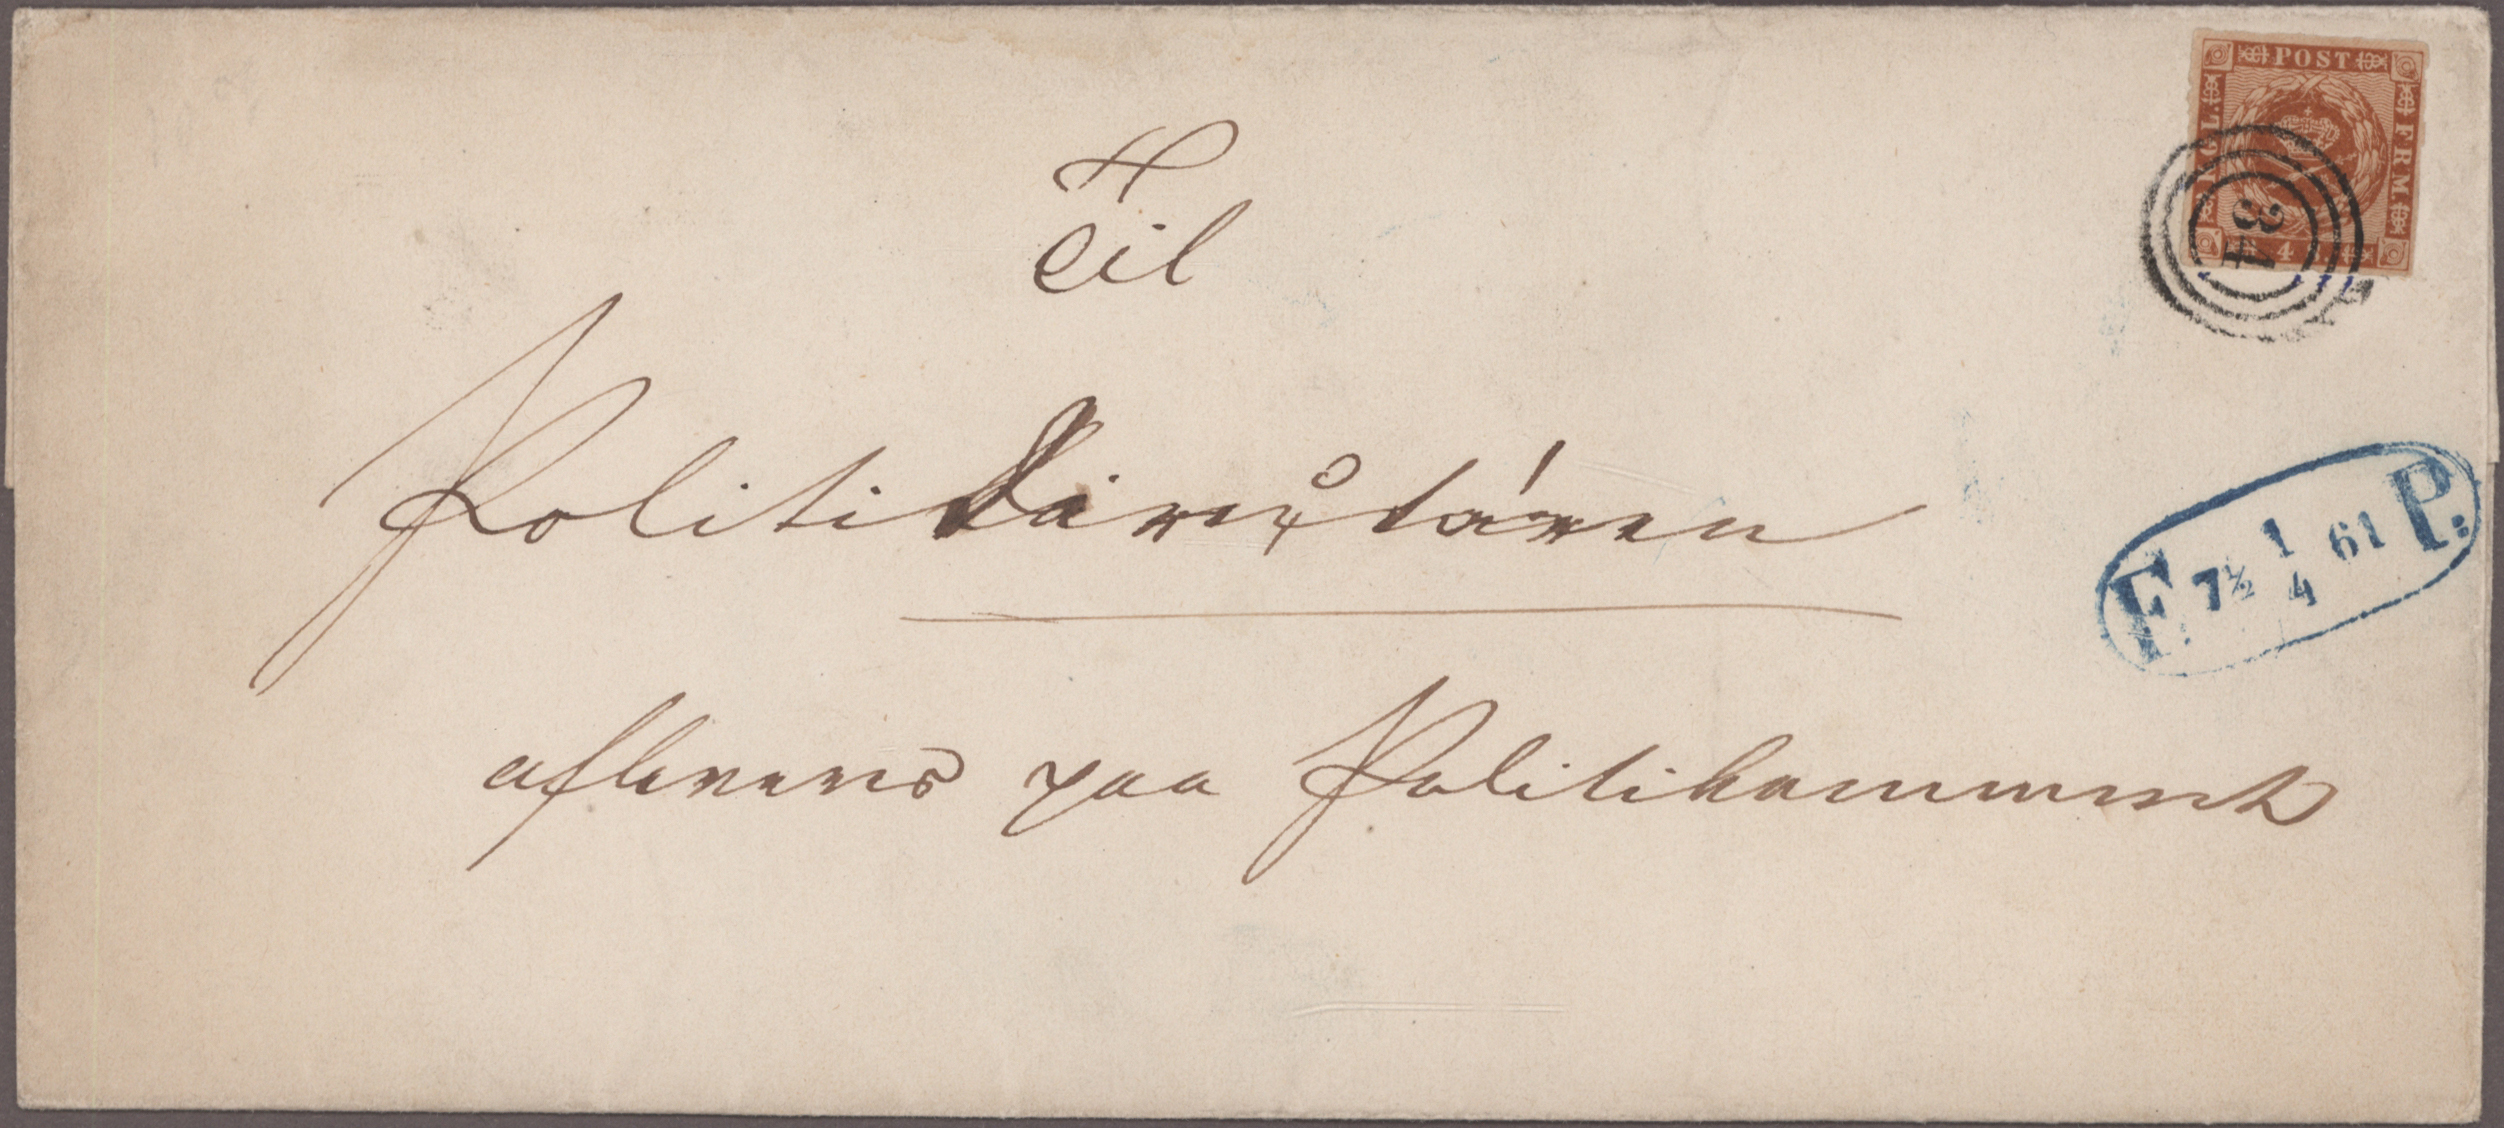 POST
KGL.
FRM
4
34
Til
Politidirectøren
F. 7½ 1/4 61 P.
afleveres paa Politikammeret